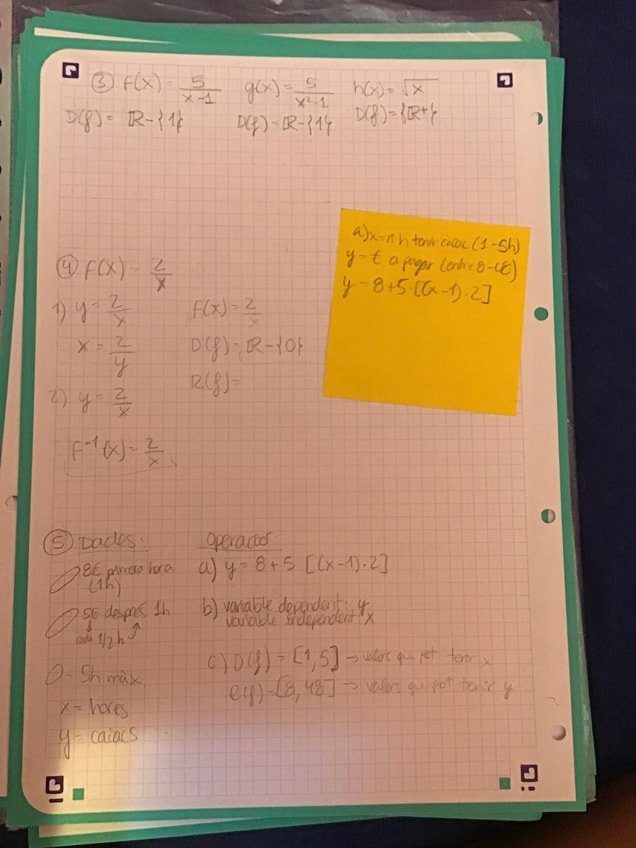 ③ F(x) = 5/(x-1) g(x) = 5/(x²-1) h(x) = √x
D(f) = ℝ-{1} D(f) = ℝ-{1} D(f) = {ℝ+}
a) x = nº h tenir caiac (1-5h)
y = € a pagar (entre 8-48)
y = 8+5·[(x-1)·2]
④ F(x) = 2/x
1) y = 2/x F(x) = 2/x
x = 2/y D(f) = ℝ-{0}
R(f) =
2) y = 2/x
F⁻¹(x) = 2/x
⑤ Dades:
8€ primera hora
(1h)
5€ després 1h
cada 1/2h
5h màx.
x = hores
y = caiacs
a) y = 8+5 [(x-1)·2]
b) variable dependent: y
variable independent: x
c) D(f) = [1,5] → valors que pot tenir x
R(f) = [8,48] → valors que pot tenir y